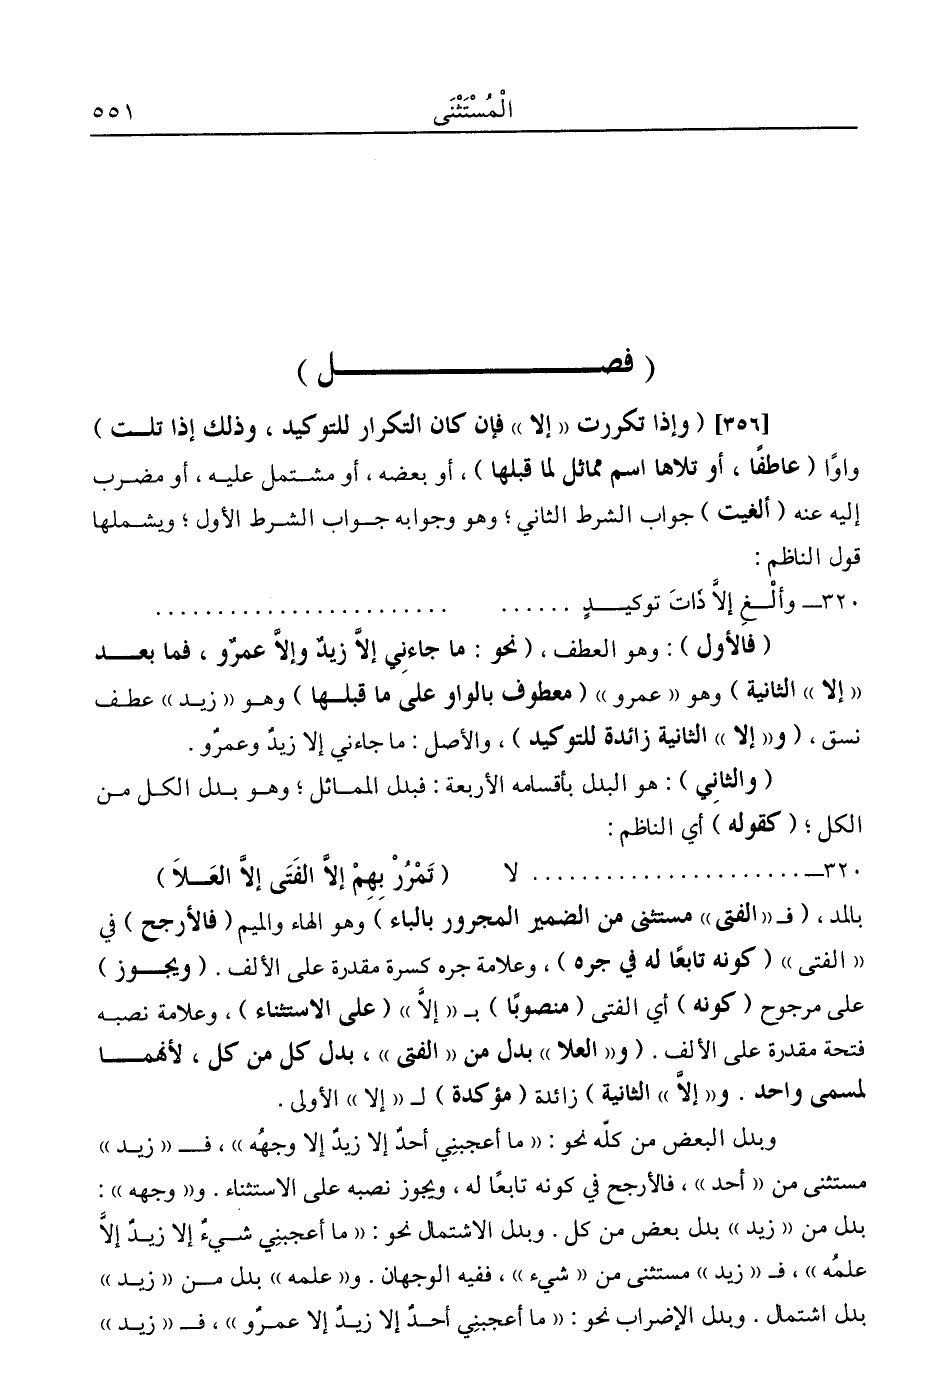 المُسْتَثْنَى ٥٥١
( فصــــــــــل )
[٣٥٦] ( وإذا تكررت « إلا » فإن كان التكرار للتوكيد ، وذلك إذا تلــت )
واوًا ( عاطفًا ، أو تلاها اسم مماثل لما قبلها ) ، أو بعضه ، أو مشـتمل عليـه ، أو مضـرب
إليه عنه ( ألغيت ) جواب الشرط الثاني ؛ وهو وجوابه جـواب الشـرط الأول ؛ ويشـملها
قول الناظم :
٣٢٠ــ وألْــغِ إلاَّ ذَاتَ توكيــدٍ ...... ........................
( فالأول ) : وهو العطف ، ( نحو : ما جاءني إلاَّ زيدٌ وإلاَّ عمرٌو ، فما بعــد
« إلا » الثانية ) وهو « عمرو » ( معطوف بالواو على ما قبلـها ) وهـو « زيـد » عطـف
نسق ، ( و« إلا » الثانية زائدة للتوكيد ) ، والأصل : ما جاءني إلا زيدٌ وعمرٌو .
( والثاني ) : هو البدل بأقسامه الأربعة : فبدل المماثل ؛ وهـو بـدل الكـل مـن
الكل ؛ ( كقوله ) أي الناظم :
٣٢٠ــ ....................... لا ( تَمْرُرْ بِهِمْ إلاَّ الفَتَى إلاَّ العَــلاَ )
بالمد ، ( فـ « الفتى » مستثنى من الضمير المجرور بالباء ) وهو الهاء والميم ( فالأرجح ) في
« الفتى » ( كونه تابعًا له في جره ) ، وعلامة جره كسرة مقدرة على الألف . ( ويجــوز )
على مرجوح ( كونه ) أي الفتى ( منصوبًا ) بـ « إلاَّ » ( على الاستثناء ) ، وعلامة نصبـه
فتحة مقدرة على الألف . ( و« العلا » بدل من « الفتى » ، بدل كل من كل ، لأنهمــا
لمسمى واحد . و« إلاَّ » الثانية ) زائدة ( مؤكدة ) لـ « إلا » الأولى .
وبدل البعض من كلّه نحو : « ما أعجبنِي أحدٌ إلا زيدٌ إلا وجهُه » ، فــ « زيـد »
مستثنى من « أحد » ، فالأرجح في كونه تابعًا له ، ويجوز نصبه على الاستثناء . و« وجهه » :
بدل من « زيد » بدل بعض من كل . وبدل الاشتمال نحو : « ما أعجبنِي شـيءٌ إلا زيـدٌ إلاَّ
علمُه » ، فـ « زيد » مستثنى من « شيء » ، ففيه الوجهان . و« علمه » بدل مـن « زيـد »
بدل اشتمال . وبدل الإضراب نحو : « ما أعجبنِي أحـدٌ إلا زيـدٌ إلا عمـرٌو » ، فــ « زيد »